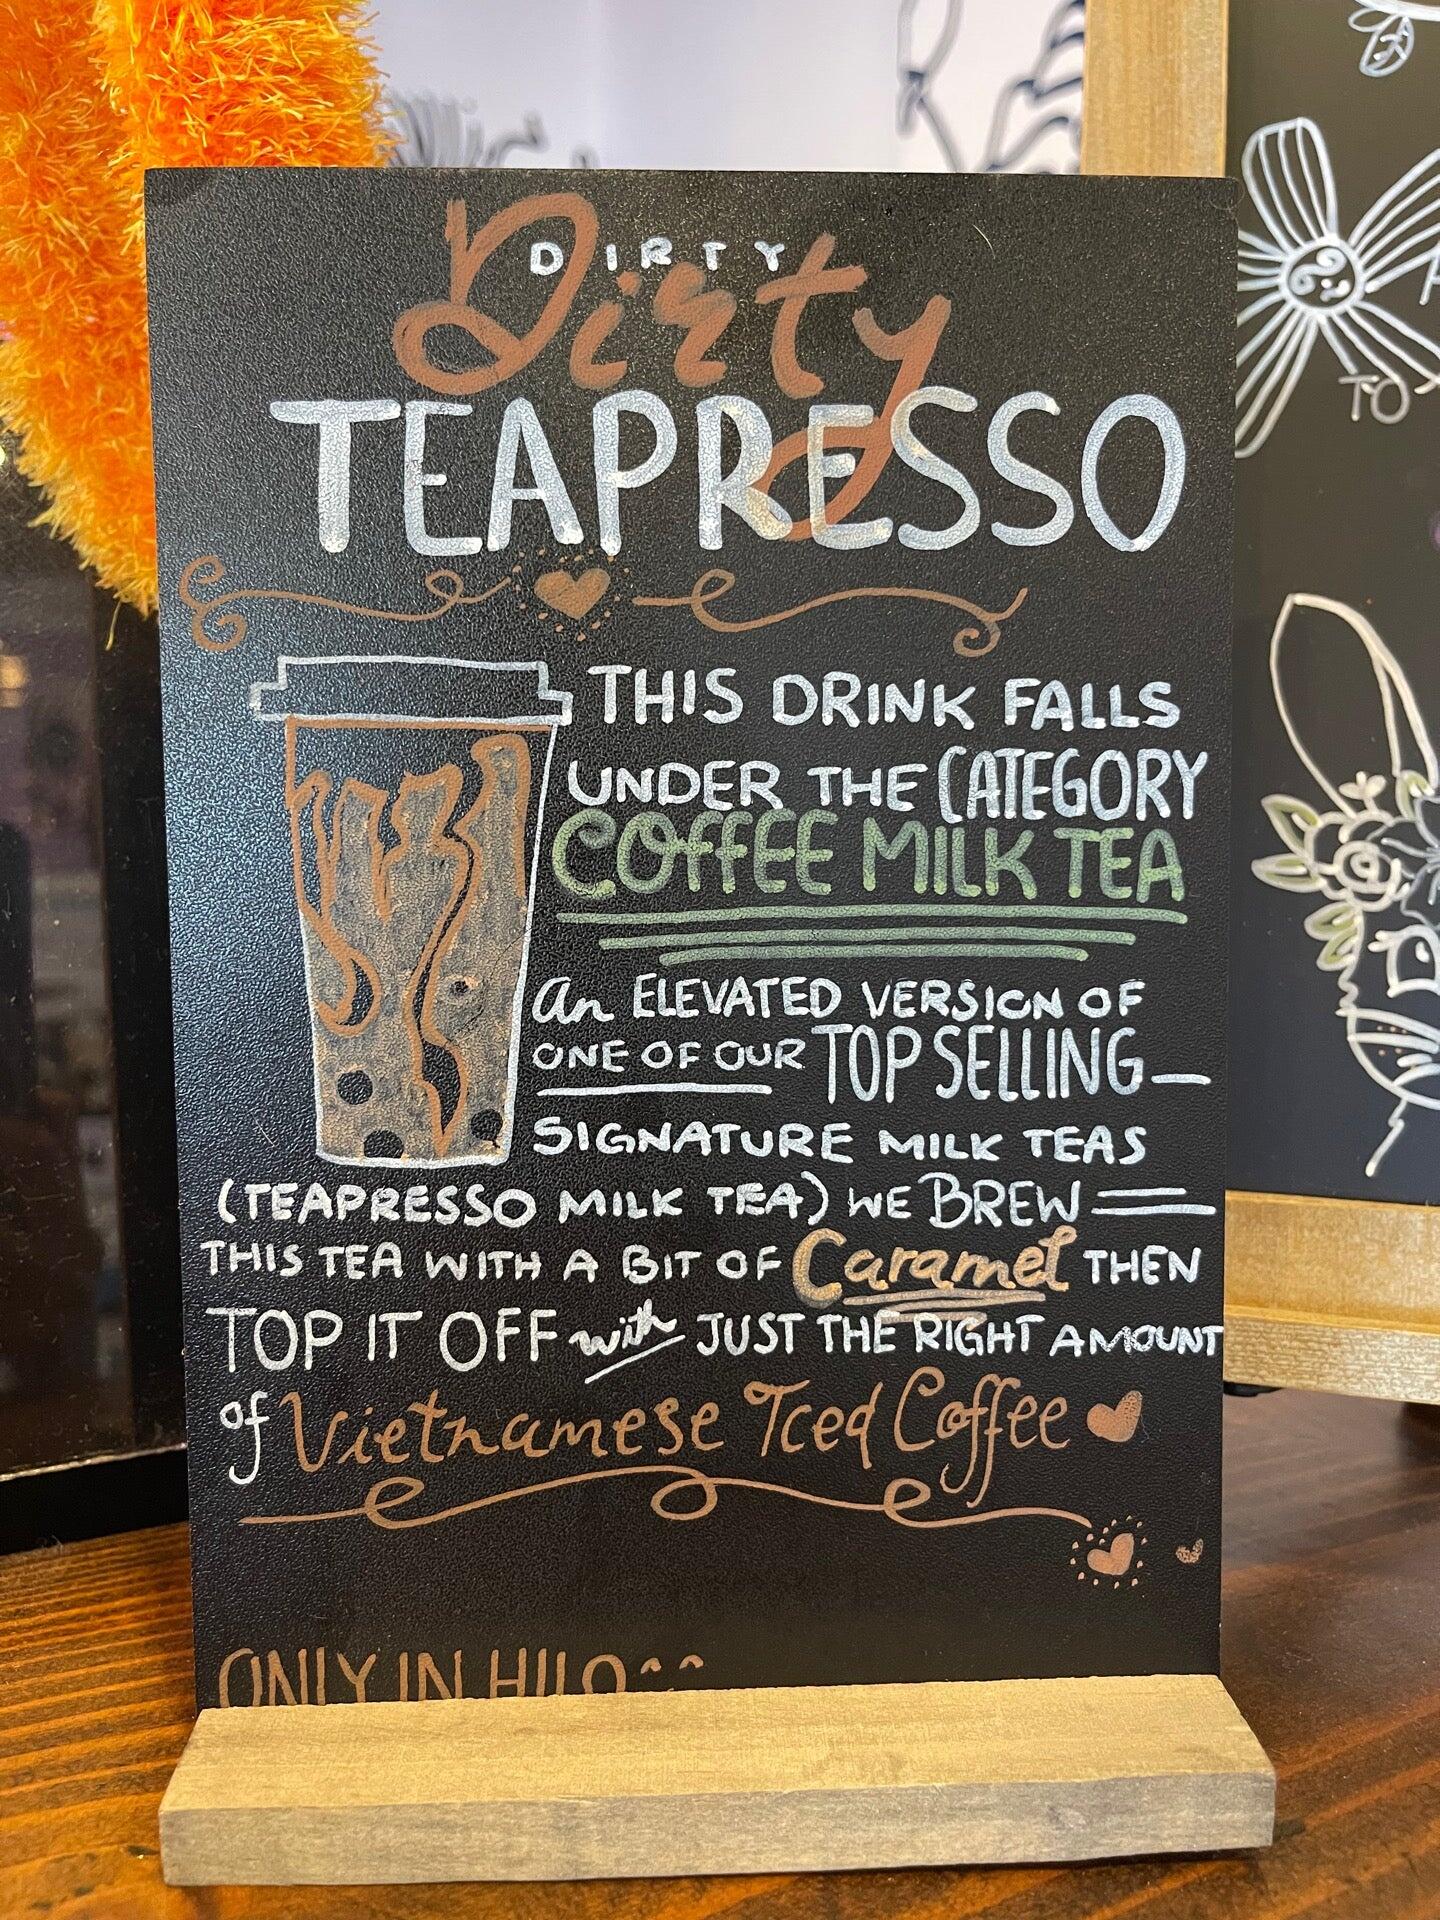 DIRTY
Dirty
TEAPRESSO
THIS DRINK FALLS
UNDER THE CATEGORY
COFFEE MILK TEA
An ELEVATED VERSION OF
ONE OF OUR TOP SELLING
SIGNATURE MILK TEAS
(TEAPRESSO MILK TEA) WE BREW
THIS TEA WITH A BIT OF Caramel THEN
TOP IT OFF with JUST THE RIGHT AMOUNT
of Vietnamese Iced Coffee
ONLY IN HILO^^
TO